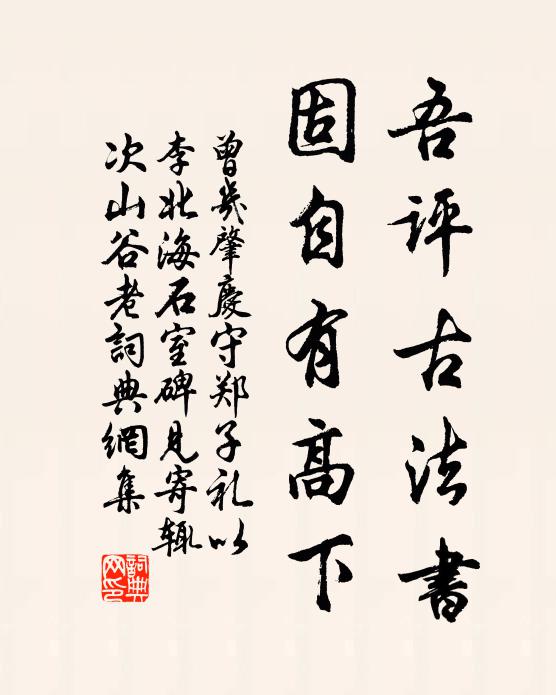 吾评古法書
固自有高下
曾幾肇慶守郑子礼以
李北海石室碑見寄輒
次山谷老詞典網集
詞典网印